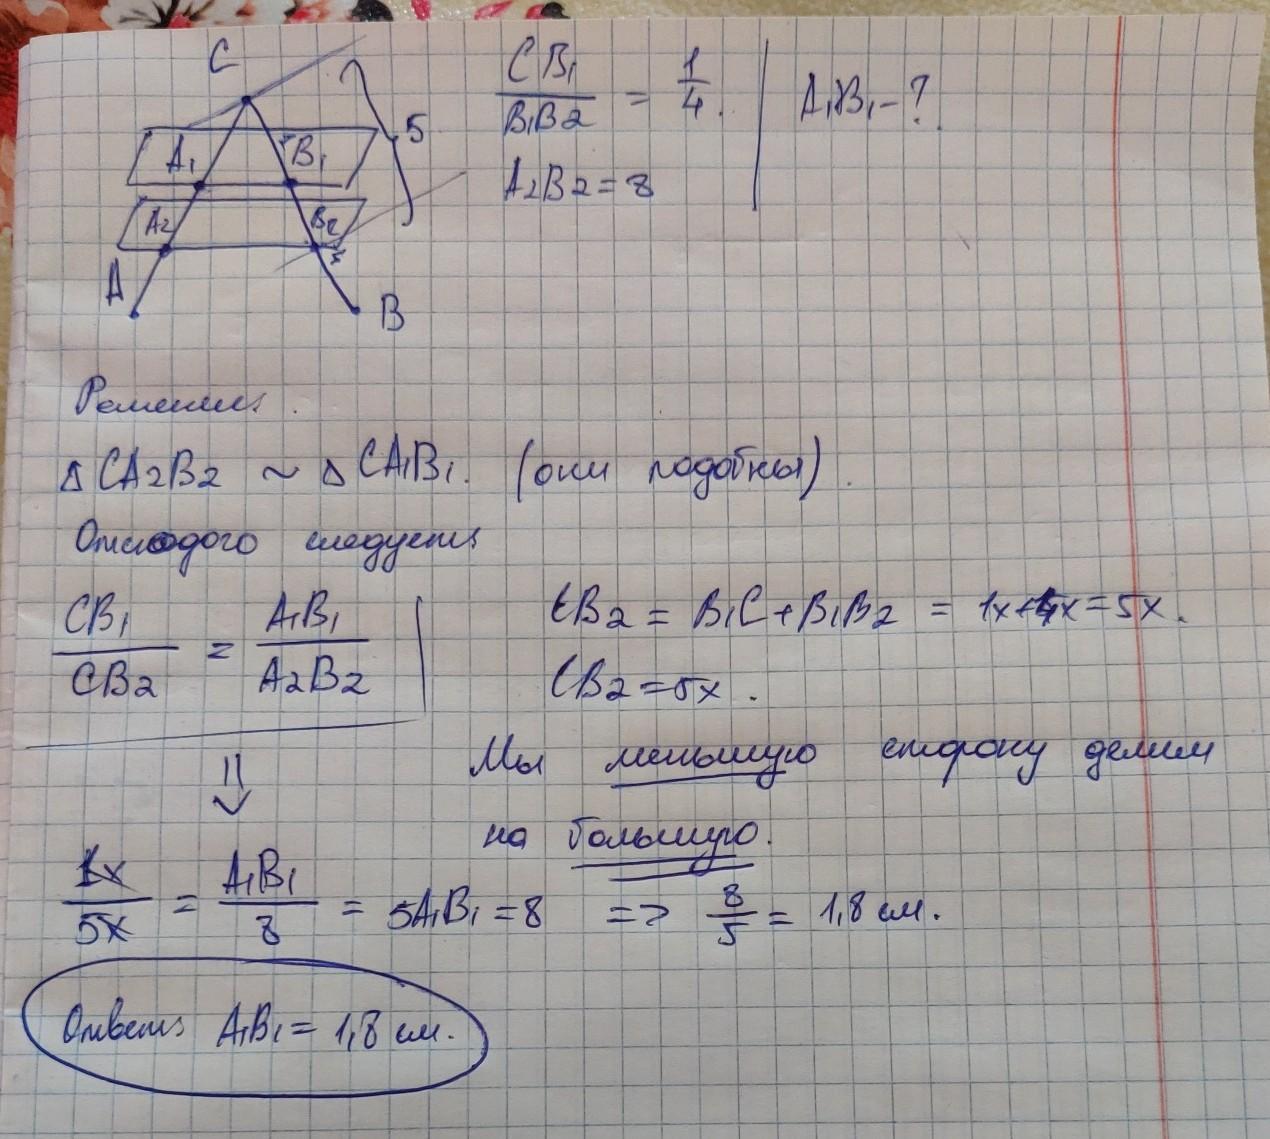 C
CB1/B1B2 = 1/4. | A1B1 - ?
A2B2 = 8
A1 B1 5
A2 B2
A B
Решение.
Δ CA2B2 ~ Δ CA1B1. (они подобны).
следует
CB1/CB2 = A1B1/A2B2
CB2 = B1C + B1B2 = 1x+4x=5x.
CB2 = 5x.
⇓
Мы меньшую сторону делим
на большую.
1x/5x = A1B1/8 = 5A1B1 = 8 => 8/5 = 1,8 см.
Ответ: A1B1 = 1,8 см.